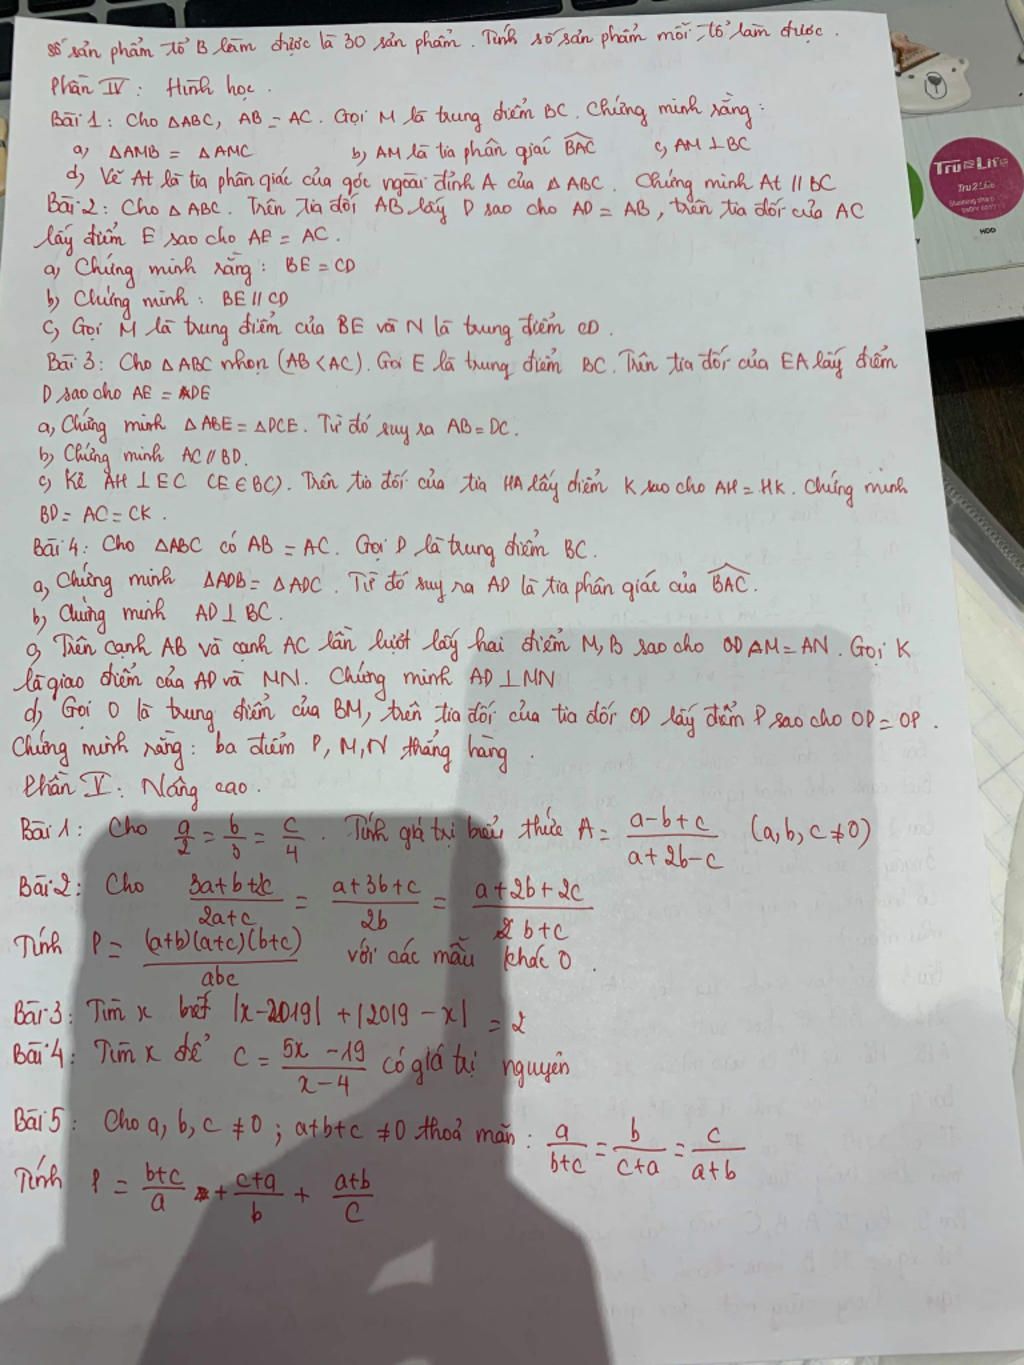 số sản phẩm tổ B làm được là 30 sản phẩm. Tính số sản phẩm mỗi tổ làm được.
Phần IV: Hình học.
Bài 1: Cho ΔABC, AB = AC. Gọi M là trung điểm BC. Chứng minh rằng:
a, ΔAMB = ΔAMC b) AM là tia phân giác \widehat{BAC} c, AM ⊥ BC
d, Vẽ At là tia phân giác của góc ngoài đỉnh A của ΔABC. Chứng minh At // BC
Bài 2: Cho ΔABC. Trên tia đối AB lấy D sao cho AD = AB, trên tia đối của AC
lấy điểm E sao cho AE = AC.
a, Chứng minh rằng: BE = CD
b) Chứng minh: BE // CD
c, Gọi M là trung điểm của BE và N là trung điểm CD.
Bài 3: Cho ΔABC nhọn (AB < AC). Gọi E là trung điểm BC. Trên tia đối của EA lấy điểm
D sao cho AE = DE
a, Chứng minh ΔABE = ΔDCE. Từ đó suy ra AB = DC.
b, Chứng minh AC // BD.
c, Kẻ AH ⊥ EC (E ∈ BC). Trên tia đối của tia HA lấy điểm K sao cho AH = HK. Chứng minh
BD = AC = CK.
Bài 4: Cho ΔABC có AB = AC. Gọi D là trung điểm BC.
a, Chứng minh ΔADB = ΔADC. Từ đó suy ra AD là tia phân giác của \widehat{BAC}.
b, Chứng minh AD ⊥ BC.
c, Trên cạnh AB và cạnh AC lần lượt lấy hai điểm M, B sao cho OD AM = AN. Gọi K
là giao điểm của AD và MN. Chứng minh AD ⊥ MN
d, Gọi O là trung điểm của BM, trên tia đối của tia đối OD lấy điểm P sao cho OP = OP.
Chứng minh rằng: ba điểm P, M, N thẳng hàng.
Phần V: Nâng cao.
Bài 1: Cho \frac{a}{2} = \frac{b}{3} = \frac{c}{4}. Tính giá trị biểu thức A = \frac{a-b+c}{a+2b-c} (a, b, c ≠ 0)
Bài 2: Cho \frac{3a+b+2c}{2a+c} = \frac{a+3b+c}{2b} = \frac{a+2b+2c}{b+c}
Tính P = \frac{(a+b)(a+c)(b+c)}{abc} với các mẫu khác 0.
Bài 3: Tìm x biết |x-2019| + |2019-x| = 2
Bài 4: Tìm x để C = \frac{5x-19}{x-4} có giá trị nguyên
Bài 5: Cho a, b, c ≠ 0; a+b+c ≠ 0 thoả mãn: \frac{a}{b+c} = \frac{b}{c+a} = \frac{c}{a+b}
Tính P = \frac{b+c}{a} + \frac{c+a}{b} + \frac{a+b}{c}
Tru2Life
Tru2Life
HDD